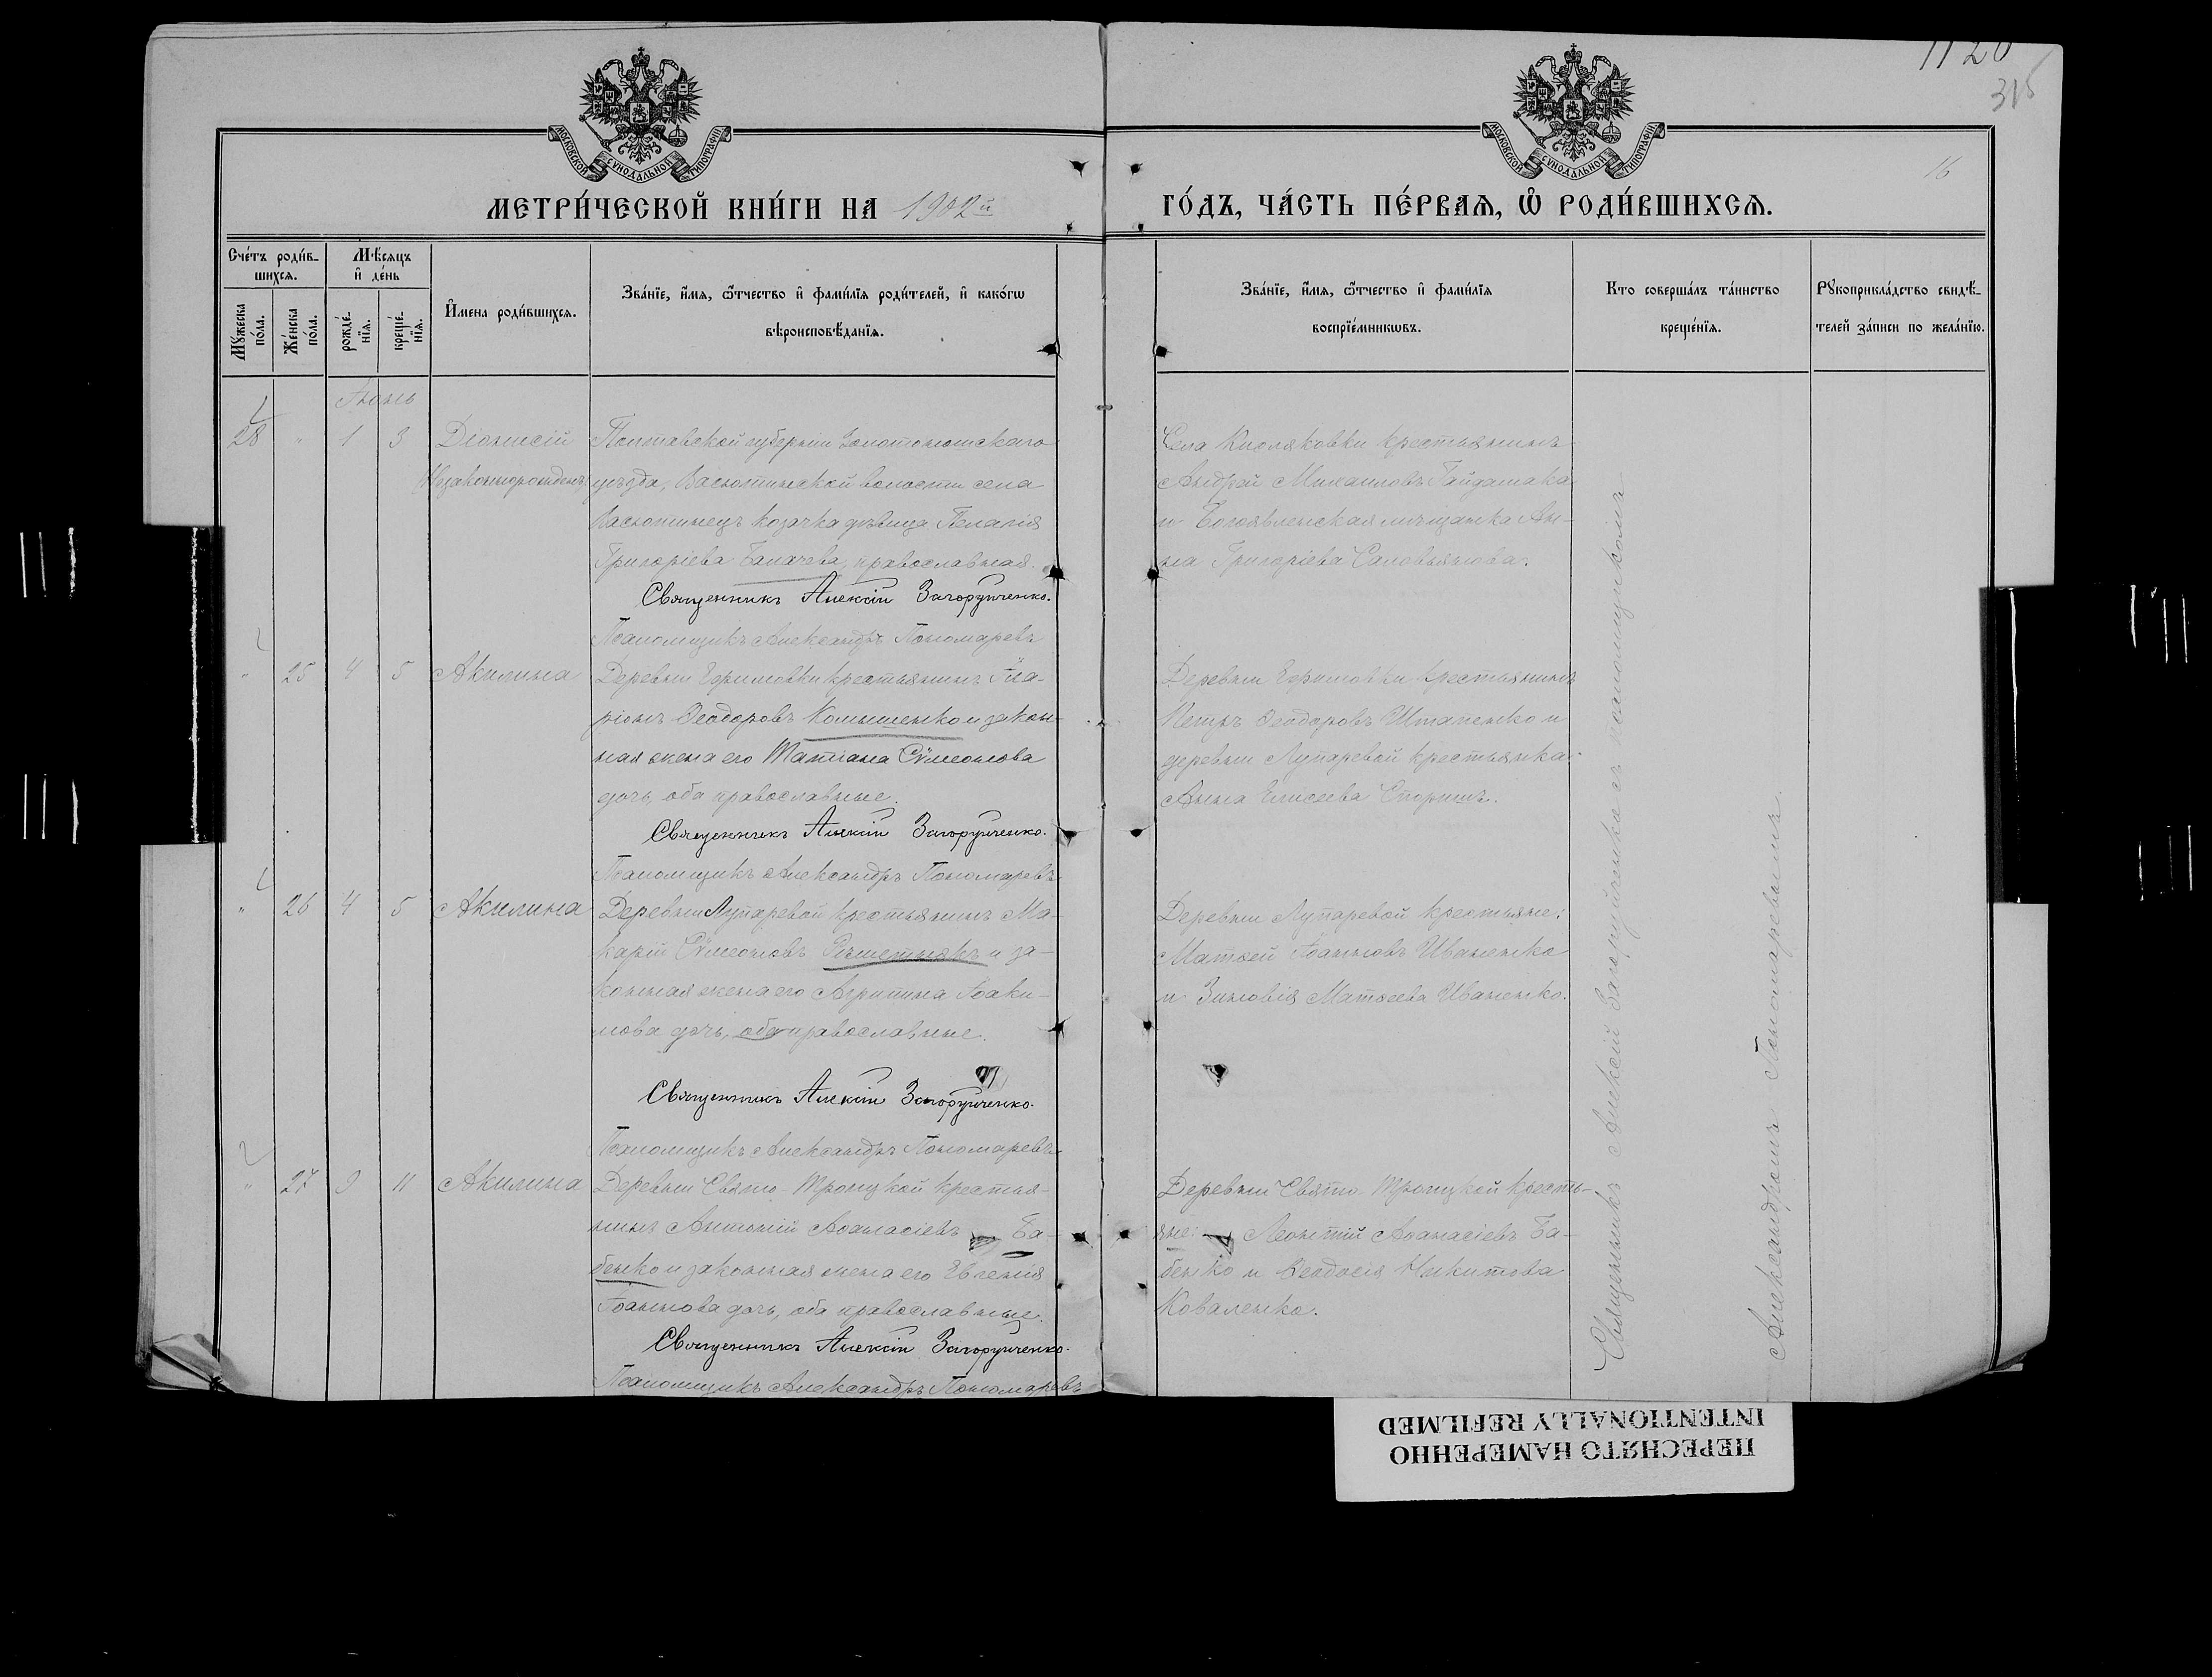 1120
315
16
МОСКОВСКОЙ СѴНОДАЛЬНОЙ ТИПОГРАФІИ
МОСКОВСКОЙ СѴНОДАЛЬНОЙ ТИПОГРАФІИ
МЕТРИ́ЧЕСКОЙ КНИ́ГИ НА 1902й
ГО́ДЪ, ЧА́СТЬ ПЕ́РВАѦ, Ѡ҆ РОДИ́ВШИХСѦ.
Сче́тъ роди́в-
шихсѧ.
Мꙋжеска по́ла.
Же́нска по́ла.
Мѣ́сѧцъ
и҆ де́нь
рожде́-
нїѧ.
креще́-
нїѧ.
И҆мена роди́вшихсѧ.
Зва́нїе, и҆́мѧ, ѻ҆́тчество и҆ фами́лїѧ роди́телей, и҆ како́гѡ
вѣроисповѣ́данїѧ.
Зва́нїе, и҆́мѧ, ѻ҆́тчество и҆ фами́лїѧ
воспрїе́мникѡвъ.
Кто соверша́лъ та́инство
креще́нїѧ.
Рꙋкоприкла́дство свидѣ́-
телей за́писи по жела́нїю.
Іюнь
28 " 1 3 Діонисій
(Незаконнорожден.)
Полтавской губерніи Золотоношскаго
уѣзда, Васютинской волости села
Васютинецъ козачка дѣвица Пелагія
Григоріева Бакачева, православная.
Священникъ Алексій Загоруйченко.
Псаломщикъ Александръ Пономаревъ
Села Кисляковки крестьянинъ
Андрей Михаиловъ Гайдамака
и Богоявленская мѣщанка Ан-
на Григоріева Саловьянова.
" 25 4 5 Акилина
Деревни Ефимовки крестьянинъ Ила-
ріонъ Ѳеодоровъ Комышенко и закон-
ная жена его Татіана Сѵмеонова
дочь, оба православные.
Священникъ Алексій Загоруйченко.
Псаломщикъ Александръ Пономаревъ
Деревни Ефимовки крестьянинъ
Петръ Ѳеодоровъ Штапенко и
деревни Лупаревой крестьянка
Анна Елисеева Сторишъ.
" 26 4 5 Акилина
Деревни Лупаревой крестьянинъ Ма-
карій Сѵмеоновъ Рѣшетнякъ и за-
конная жена его Агрипина Іоаки-
мова дочь, оба православные.
Священникъ Алексій Загоруйченко.
Псаломщикъ Александръ Пономаревъ
Деревни Лупаревой крестьяне:
Матѳей Іоанновъ Иваненко
и Зиновія Матѳеева Иваненко.
" 27 9 11 Акилина
Деревни Свято-Троицкой крестья-
нинъ Антоній Аѳанасіевъ Ба-
бенко и законная жена его Евгенія
Іоаннова дочь, оба православные.
Священникъ Алексій Загоруйченко.
Псаломщикъ Александръ Пономаревъ
Деревни Свято-Троицкой кресть-
яне: Леонтій Аѳанасіевъ Ба-
бенко и Ѳеодосія Никитова
Коваленко.
Священникъ Алексій Загоруйченко съ псаломщикомъ
Александромъ Пономаревымъ.
ПЕРЕСНЯТО НАМЕРЕННО
INTENTIONALLY REFILMED